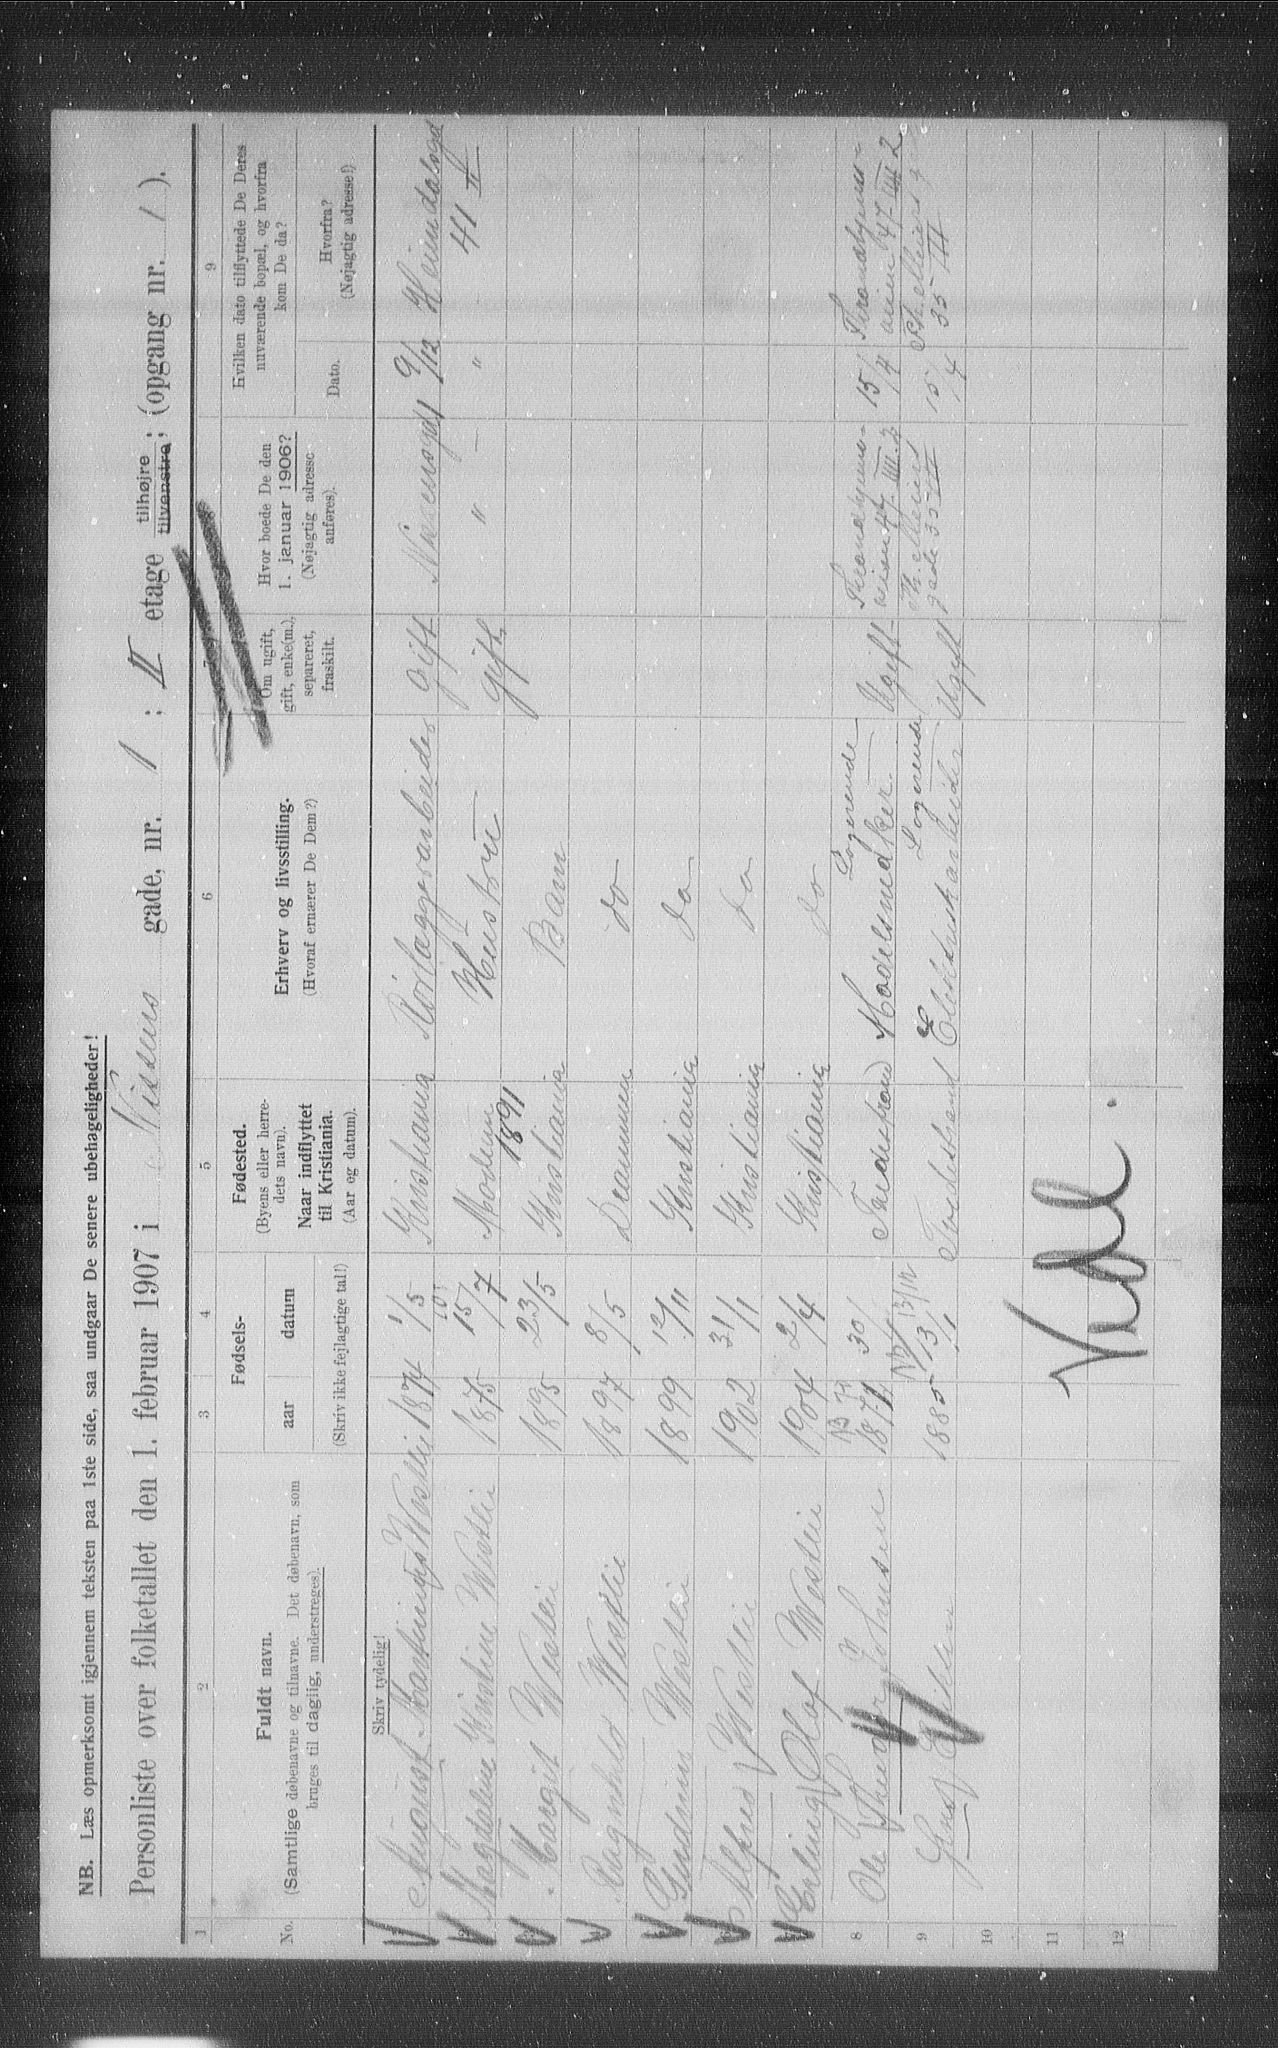 NB. Læs opmerksomt igjennem teksten paa 1ste side, saa undgaar De senere ubehageligheder!
Personliste over folketallet den 1. februar 1907 i Nissens gade, nr. 1 ; II etage tilhøjre tilvenstre ; (opgang nr. 1 ).
1 2 3 4 5 6 7 8 9
No.
Fuldt navn.
(Samtlige døbenavne og tilnavne. Det døbenavn, som
bruges til daglig, understreges).
Fødsels-
aar datum
(Skriv ikke fejlagtige tal!)
Fødested.
(Byens eller herre-
dets navn).
Naar indflyttet
til Kristiania.
(Aar og datum).
Erhverv og livsstilling.
(Hvoraf ernærer De Dem?)
Om ugift,
gift, enke(m.),
separeret,
fraskilt.
Hvor boede De den
1. januar 1906?
(Nøjagtig adresse
anføres).
Hvilken dato tilflyttede De Deres
nuværende bopæl, og hvorfra
kom De da?
Dato.
Hvorfra?
(Nøjagtig adresse!)
Skriv tydelig!
August Westlie 1874 1/5 Kristiania Rörlæggerarbeider gift Nissensgd 1 9/12 Heimdalsgd
Magdaline Kristine Westlie 1875 15/7 Modum 1891 Hustru gift " — " 41 II
Margit Westlie 1895 23/5 Kristiania Barn
Ragnhild Westlie 1897 8/5 Drammen do
Gudrun Westlie 1899 12/11 Kristiania do
Alfred Westlie 1902 31/1 Kristiania do
Erling Olaf Westlie 1904 2/4 Kristiania do
8 Ole Johnsen Fredrikstad Logerende Modelsnedker Ugift 47 III 2 15/4 Trondhjems-
veien 47 III 2
9 1885 13/1 Logerende Ugift Th. Meiers
gade 35 II 15/4 Th. Meiers g
35 II
10
11
12